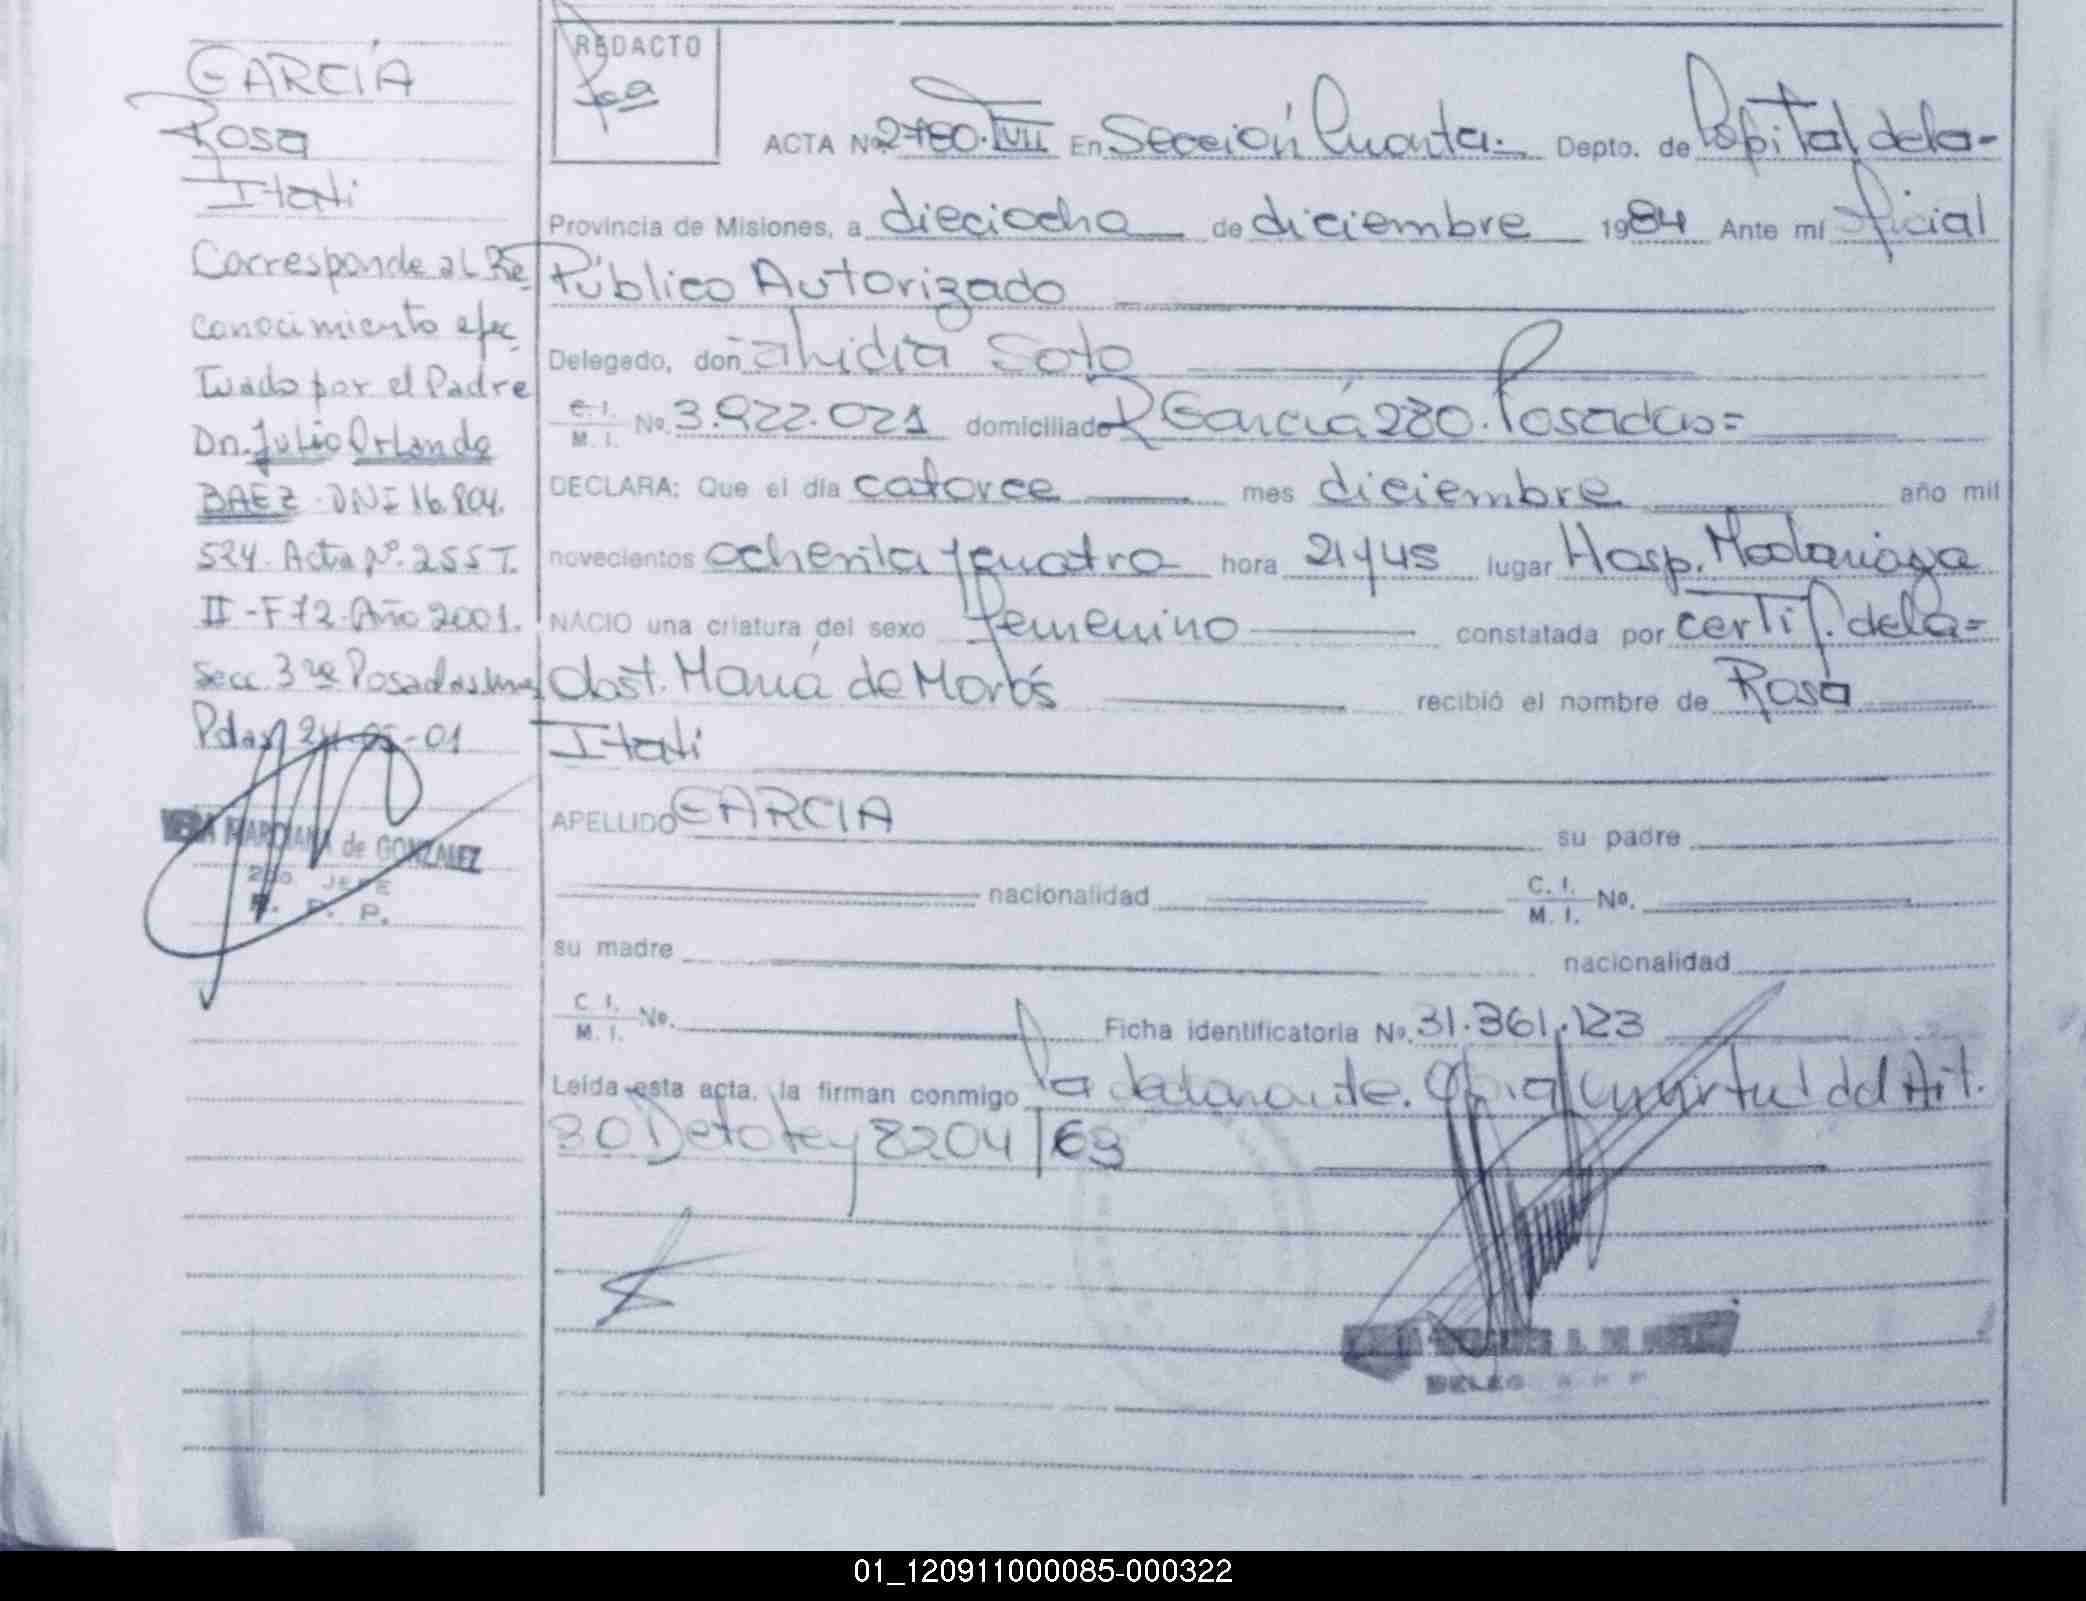 GARCIA
Rosa
Itati
Corresponde al Re
conocimiento efec
tuado por el Padre
Dn. Julio Orlando
BAEZ - DNI 16.804.
524. Acta Nº. 255 T.
II - F 72. Año 2001.
Secc. 3ra Posadas Mnes
Pdas, 24-05-01
MARCIANA de GONZALEZ
2do. JEFE
R. P. P.
REDACTO
ACTA Nº 2780. T VII En Sección Cuarta. Depto. de Capital de la-
Provincia de Misiones, a dieciocho de diciembre 1984 Ante mí Oficial
Público Autorizado
Delegado, don Soto
C. I. M. I. No. 3.922.021 domiciliado R García 280. Posadas=
DECLARA: Que el día catorce mes diciembre año mil
novecientos ochenta y cuatro hora 21 y 45 lugar Hosp. Madariaga
NACIO una criatura del sexo femenino constatada por certif. de la=
Obst. María de Morós recibió el nombre de Rosa
Itati
APELLIDO GARCIA su padre
nacionalidad C. I. M. I. No.
su madre nacionalidad
C. I. M. I. No. Ficha identificatoria No. 31.361.123
Leída esta acta, la firman conmigo la declarante. virtud del Art.
30 Dcto Ley 8204/63
DELEG
01_120911000085-000322